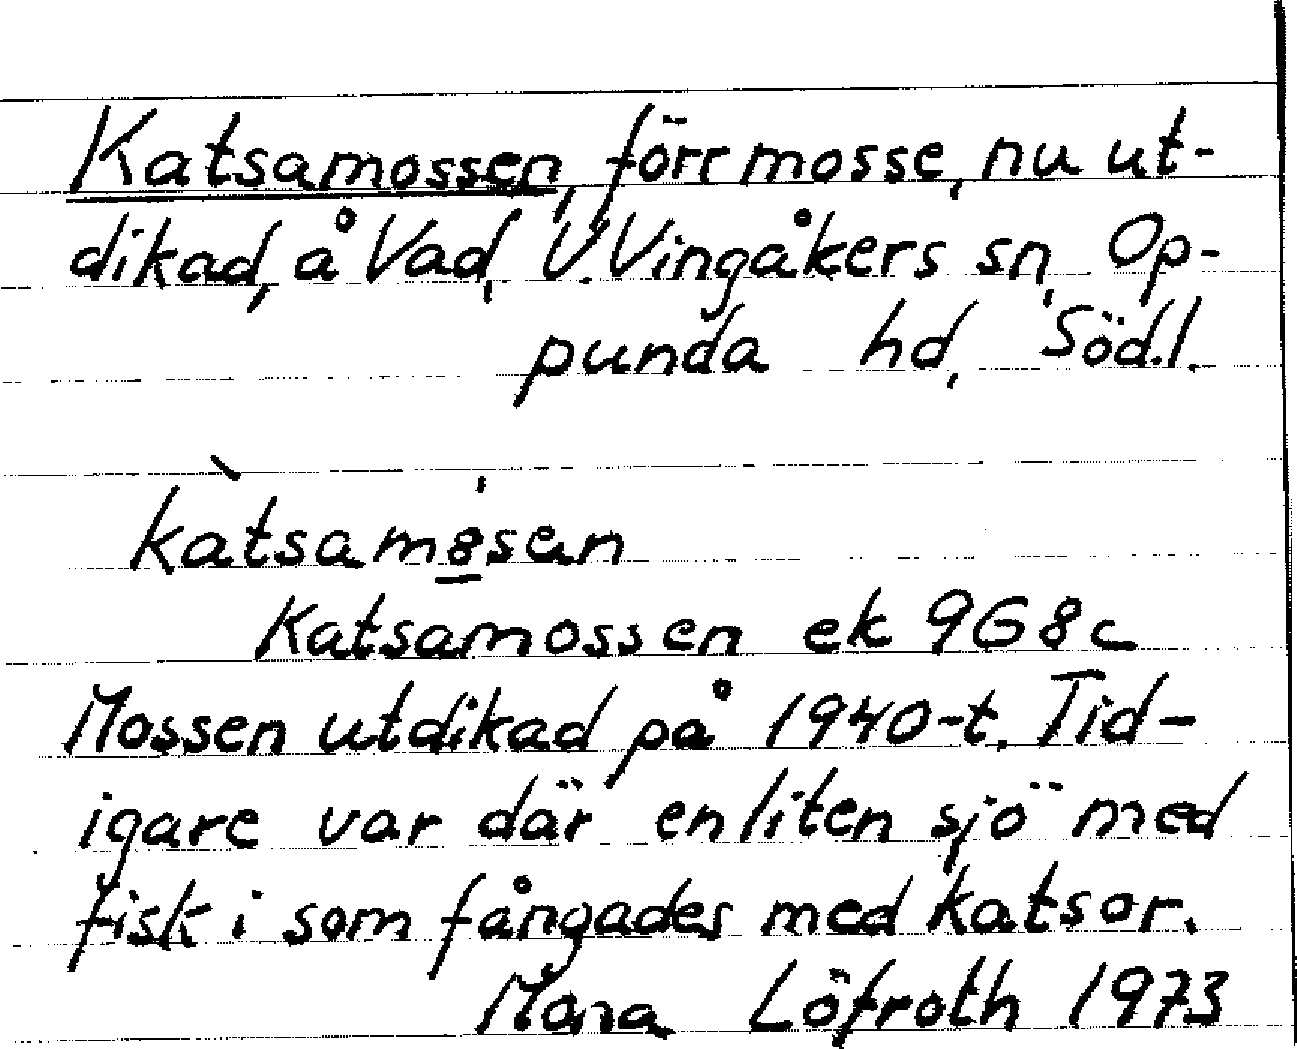 Katsamossen, förr mosse, nu ut-
dikad, å Vad, V. Vingåkers sn, Op-
punda hd, Söd.l.
kàtsam8sen
Katsamossen ek 9G8c
Mossen utdikad på 1940-t. Tid-
igare var där en liten sjö med
fisk i som fångades med katsor.
Löfroth 1973